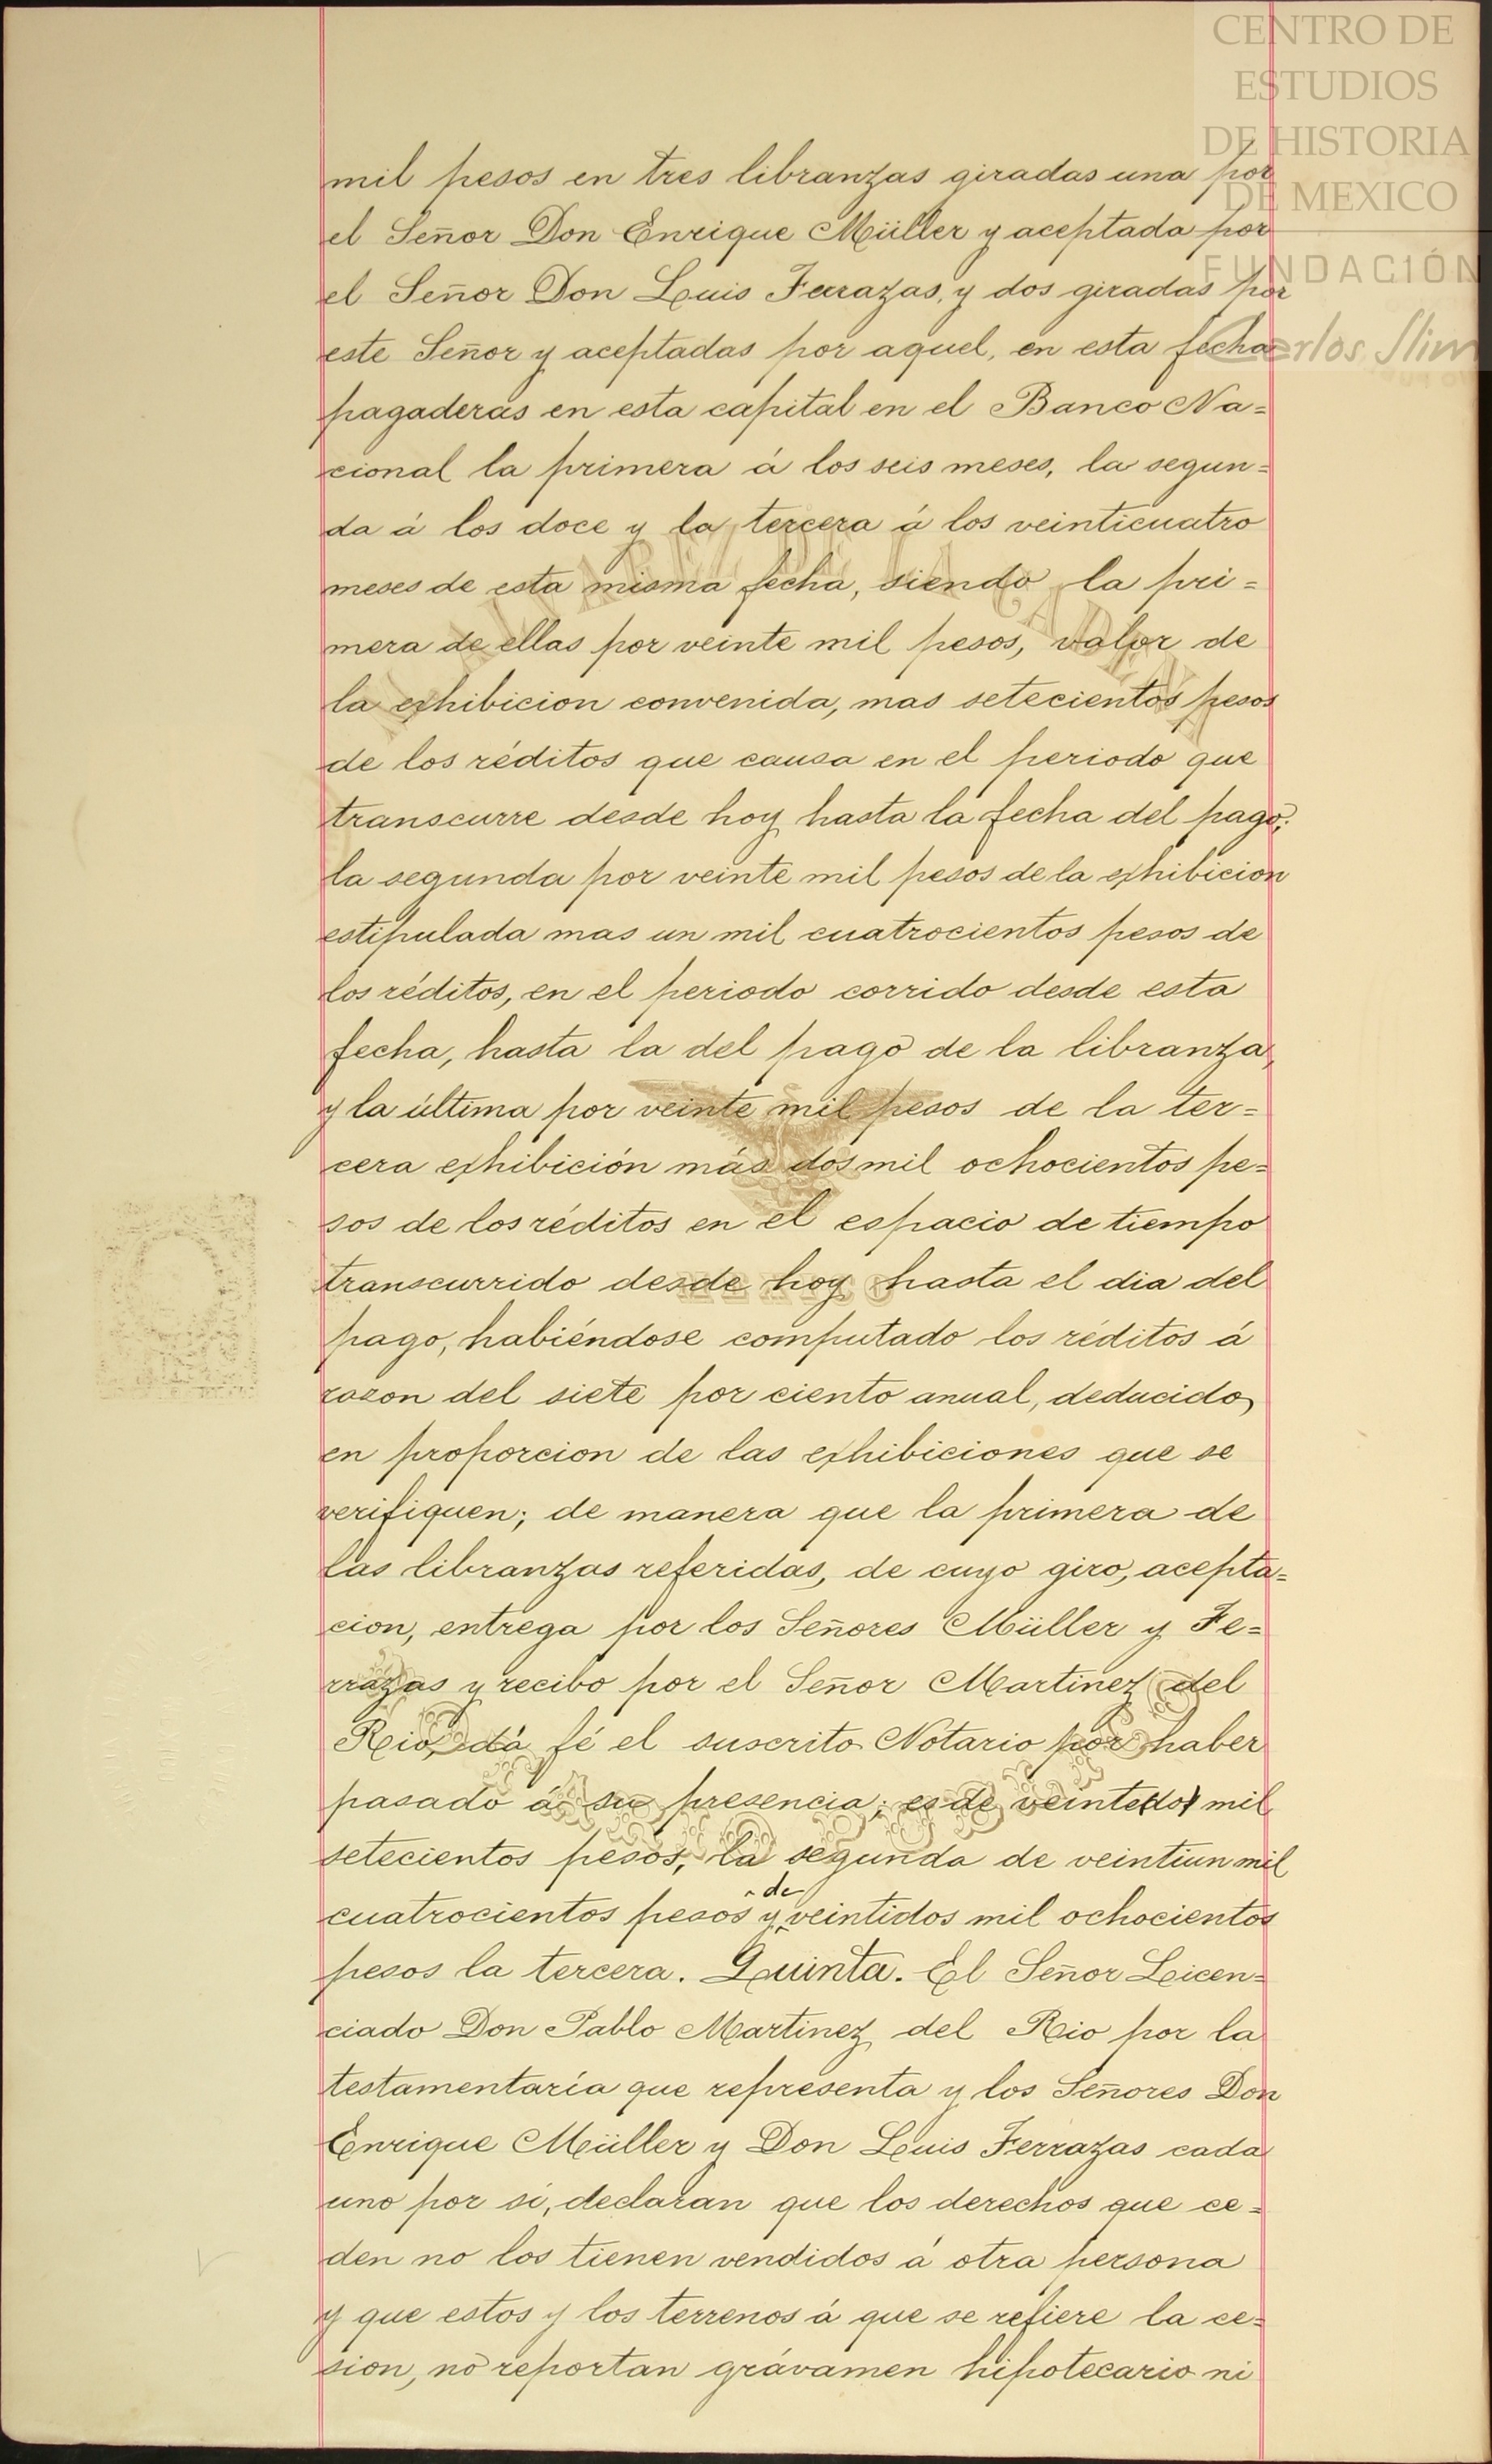 CENTRO DE
ESTUDIOS
DE HISTORIA
DE MEXICO
FUNDACIÓN
Carlos Slim
mil pesos en tres libranzas giradas una por
el Señor Don Enrique Müller y aceptada por
el Señor Don Luis Terrazas, y dos giradas por
este Señor y aceptadas por aquel, en esta fecha
pagaderas en esta capital en el Banco Na=
cional la primera á los seis meses, la segun=
da á los doce y la tercera á los veinticuatro
meses de esta misma fecha, siendo la pri=
mera de ellas por veinte mil pesos, valor de
la exhibicion convenida, mas setecientos pesos
de los réditos que causa en el periodo que
transcurre desde hoy hasta la fecha del pago;
la segunda por veinte mil pesos de la exhibicion
estipulada mas un mil cuatrocientos pesos de
los réditos, en el periodo corrido desde esta
fecha, hasta la del pago de la libranza,
y la última por veinte mil pesos de la ter=
cera exhibición más dos mil ochocientos pe=
sos de los réditos en el espacio de tiempo
transcurrido desde hoy hasta el dia del
pago, habiéndose computado los réditos á
razon del siete por ciento anual, deducido
en proporcion de las exhibiciones que se
verifiquen; de manera que la primera de
las libranzas referidas, de cuyo giro, acepta=
cion, entrega por los Señores Müller y Te=
rrazas y recibo por el Señor Martinez del
Rio, dá fé el suscrito Notario por haber
pasado á su presencia; es de veinte(dos) mil
setecientos pesos, la segunda de veintiun mil
cuatrocientos pesos y de veintidos mil ochocientos
pesos la tercera. Quinta. El Señor Licen=
ciado Don Pablo Martinez del Rio por la
testamentaría que representa y los Señores Don
Enrique Müller y Don Luis Terrazas cada
uno por sí, declaran que los derechos que ce=
den no los tienen vendidos á otra persona
y que estos y los terrenos á que se refiere la ce=
sion, no reportan grávamen hipotecario ni